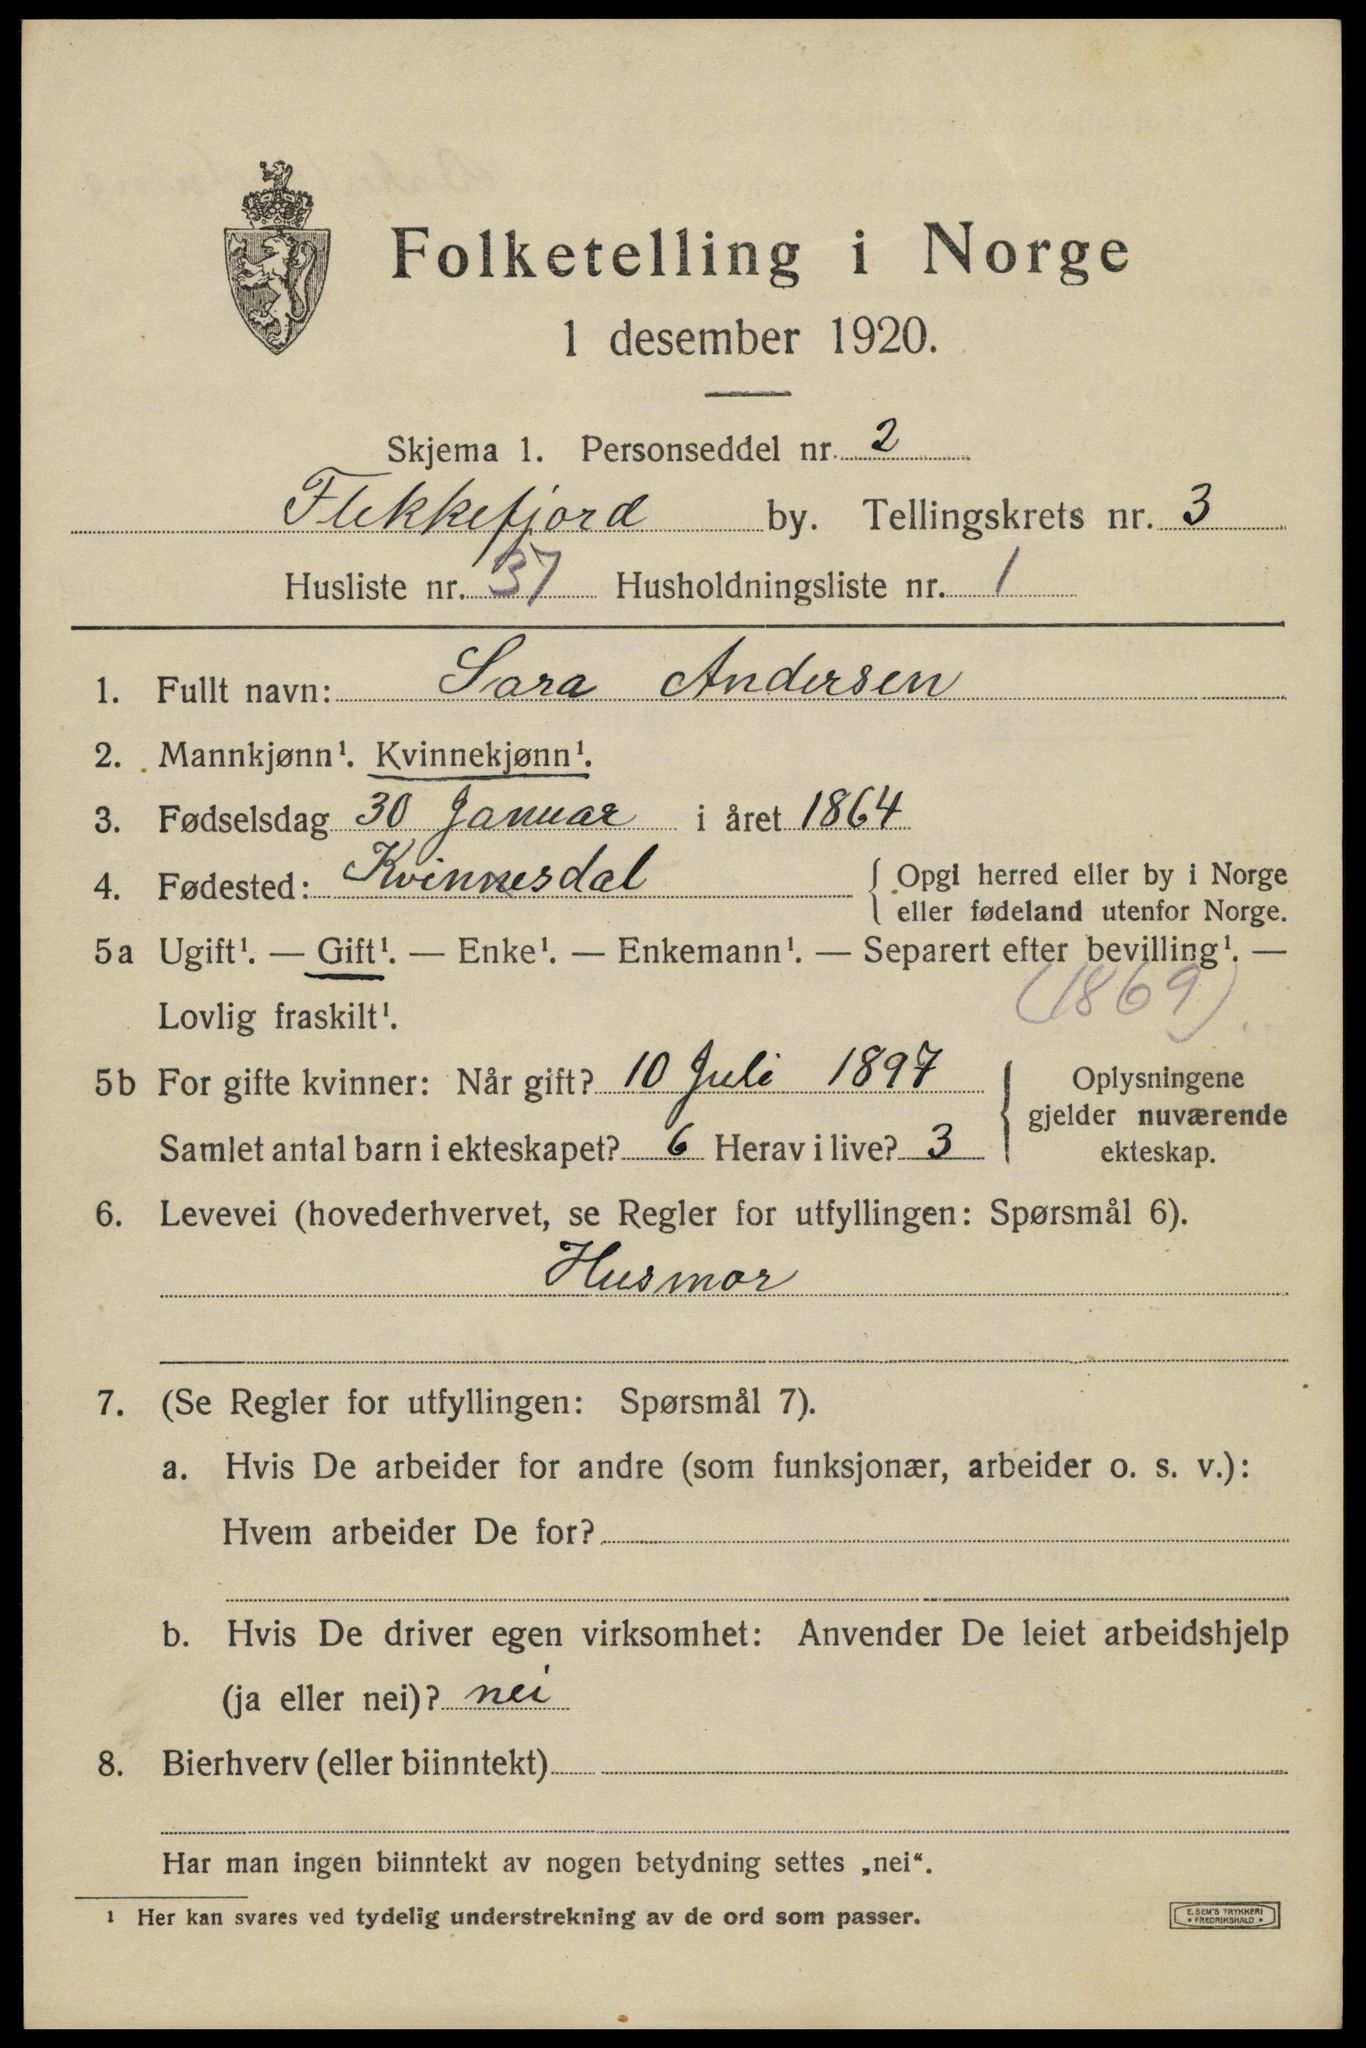 Folketelling i Norge
1 desember 1920.
Skjema 1. Personseddel nr. 2
Flekkefjord by. Tellingskrets nr. 3
Husliste nr. 37 Husholdningsliste nr. 1
1. Fullt navn: Sara Andersen
2. Mannkjønn¹. Kvinnekjønn¹.
3. Fødselsdag 30 Januar i året 1864
4. Fødested: Kvinnesdal { Opgi herred eller by i Norge
eller fødeland utenfor Norge.
5a Ugift¹. — Gift¹. — Enke¹. — Enkemann¹. — Separert efter bevilling¹. —
(1869)
Lovlig fraskilt¹.
5b For gifte kvinner: Når gift? 10 Juli 1897 { Oplysningene
gjelder nuværende
Samlet antal barn i ekteskapet? 6 Herav i live? 3 ekteskap.
6. Levevei (hovederhvervet, se Regler for utfyllingen: Spørsmål 6).
Husmor
7. (Se Regler for utfyllingen: Spørsmål 7).
a. Hvis De arbeider for andre (som funksjonær, arbeider o. s. v.):
Hvem arbeider De for?
b. Hvis De driver egen virksomhet: Anvender De leiet arbeidshjelp
(ja eller nei)? nei
8. Bierhverv (eller biinntekt)
Har man ingen biinntekt av nogen betydning settes „nei“.
¹ Her kan svares ved tydelig understrekning av de ord som passer.
E. SEM'S TRYKKERI
• FREDRIKSHALD •